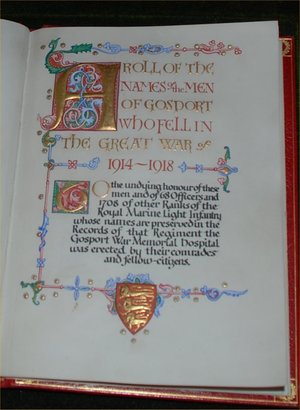 A ROLL OF THE
NAMES of the MEN
OF GOSPORT
WHO FELL IN
THE GREAT WAR of
1914~1918
To the undying honour of these
men and of 68 Officers and
1708 of other Ranks of the
Royal Marine Light Infantry
whose names are preserved in the
Records of that Regiment the
Gosport War Memorial Hospital
was erected by their comrades
and fellow-citizens.